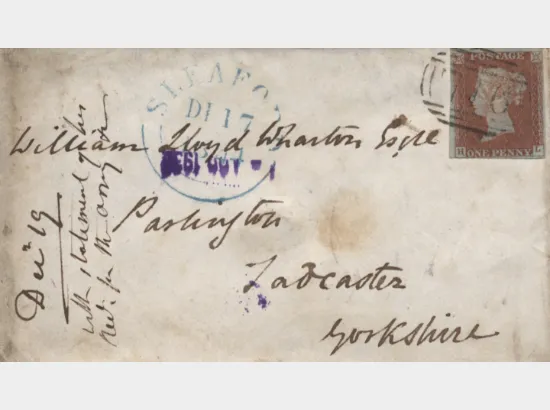 POSTAGE
ONE PENNY
SLEAFO
DE 17
William Lloyd Wharton Esqre
Parlington
Tadcaster
Yorkshire
Decr 19
with statement of
Recd. for